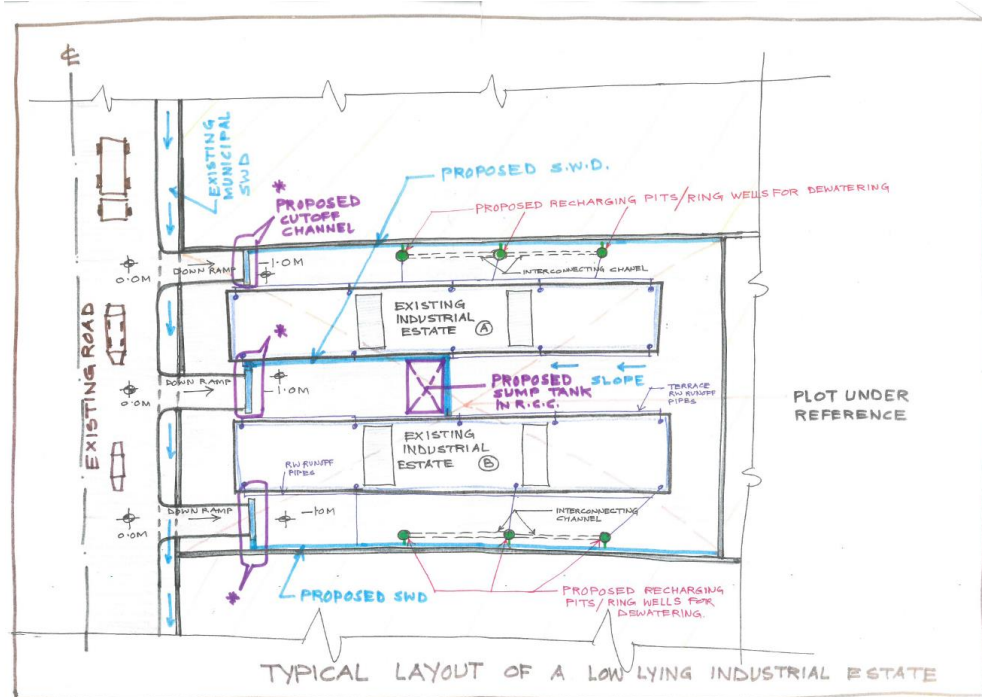 ℄
EXISTING
MUNICIPAL
SWD
*
PROPOSED
CUTOFF
CHANNEL
PROPOSED S.W.D.
PROPOSED RECHARGING PITS/RING WELLS FOR DEWATERING
DOWN RAMP
0.0M
-1.0M
INTERCONNECTING CHANEL
EXISTING
INDUSTRIAL
ESTATE A
*
EXISTING ROAD
DOWN RAMP
0.0M
-1.0M
PROPOSED
SUMP TANK
IN R.C.C.
SLOPE
TERRACE
RW RUNOFF
PIPES
PLOT UNDER
REFERENCE
EXISTING
INDUSTRIAL
ESTATE B
RW RUNOFF
PIPES
DOWN RAMP
0.0M
-1.0M
INTERCONNECTING
CHANNEL
*
PROPOSED SWD
PROPOSED RECHARGING
PITS/RING WELLS FOR
DEWATERING.
TYPICAL LAYOUT OF A LOW LYING INDUSTRIAL ESTATE